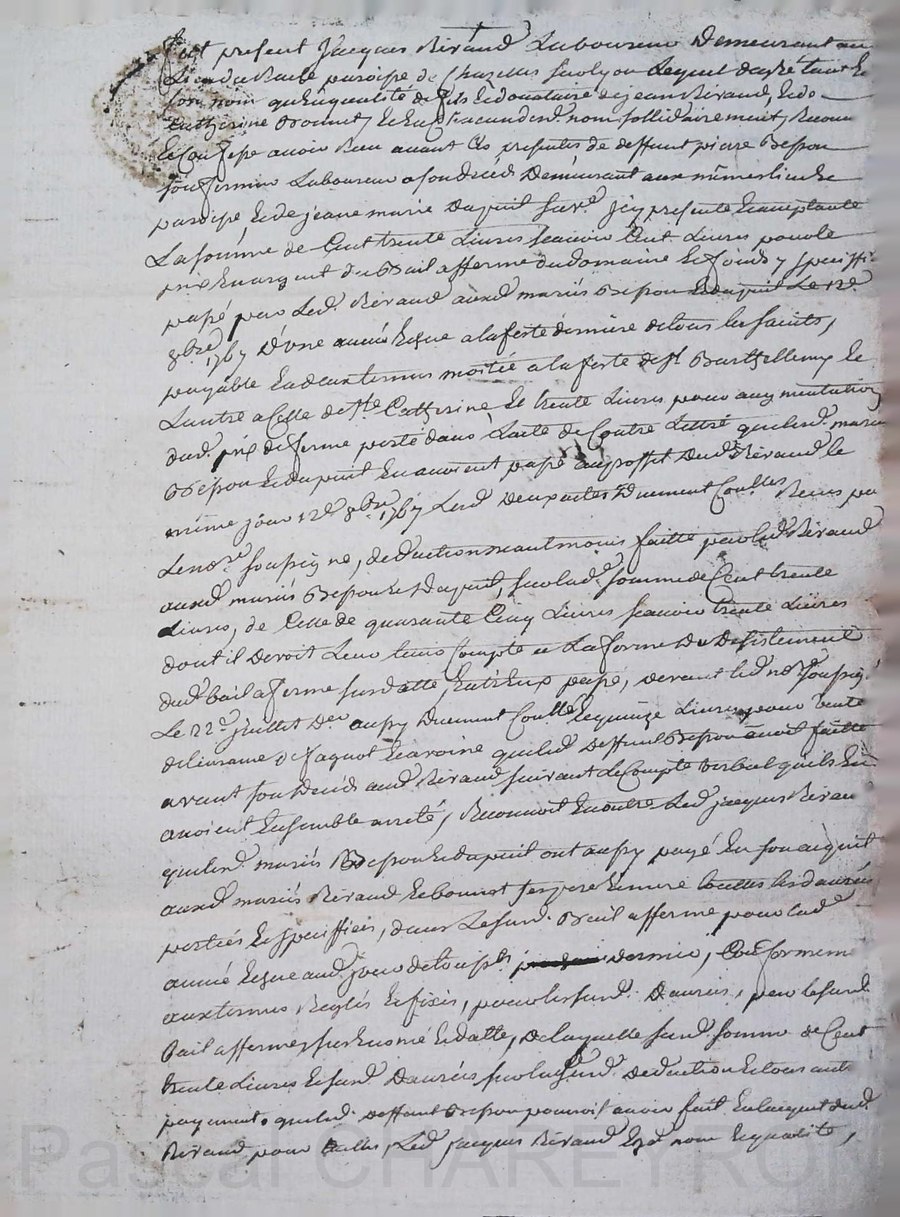 fut present Jacques Riraud Laboureur Demeurant au
Lieu de paroisse de Chazelles sur lyon Lequel de gré tant en
son nom qu'en qualité de fils et donataire de jean Riraud, et de
Catherine Bonnet, et en nom sollidairement, Reconn
et Confesse avoir Reçu avant Ces presentes de deffunt pierre Besson
son fermier Laboureur a son decés Demeurant aux mêmes lieu et
paroisse, et de jeane marie Dupuit sa v.e jcy presente et acceptante
La somme de Cent trente Livres scavoir Cent Livres pour le
prix en argent du Bail afferme du domaine et fonds y speciffi
passé par Led. Riraud auxd. mariés Besson et dupuit Le 12e
8bre 1767 D'une année Echue a la feste derniere de tous les saints,
payable En deux termes moitié a la feste de st Barthellemy et
Lautre a Celle de ste Catherine Et trente Livres pour augmentation
dud. prix de ferme porté dans Lacte de Contre Lettre que lesd. mariés
Besson et dupuit En avoient passé au proffit Dud. Riraud le
même jour 12e 8bre 1767 Lesd. Deux actes Duement Conllés Reçus par
Le no.re soussigné, deduction neantmoins faitte par led. Riraud
auxd. mariés Besson et Dupuit, sur lad. somme de Cent trente
Livres, de Celle de quarante Cinq Livres scavoir trente Livres
dont il Devoit Leur tenir Compte en La forme Du Desistement
dud. bail a ferme susdatté, Entr'Eux passé, devant led. no.re soussigné
Le 22e juillet Der. aussy Duement Conllé et quinze Livres pour vente
delivrance de et avoine que led. Deffunt Besson avoit faitte
avant son Decés aud. Riraud suivant Le Compte verbal qu'ils En
avoient Ensemble arreté, Reconnoit En outre Led. jacques Riraud
que lesd. mariés Besson et dupuit ont aussy payé En son acquit
auxd. mariés Riraud et bonnet ses pere et mere touttes les danrées
portées et speciffiées, dans Le susd. Bail afferme pour lad.
année Echue aud. jour de toussts dernier, Conformement
aux termes Reglés et fixés, pour les susd. Danrées, par le susd.
Bail afferme, sus enoncé et datté, De laquelle susd. somme de Cent
trente Livres et susd. Danrées sur la susd. Deduction et tous auts
payements que led. deffunt Besson pourroit avoir fait En lacquit dud.
Riraud pour tailles, Led. jacques Riraud Esd. nom et qualité,
Pascal CHAREYRON